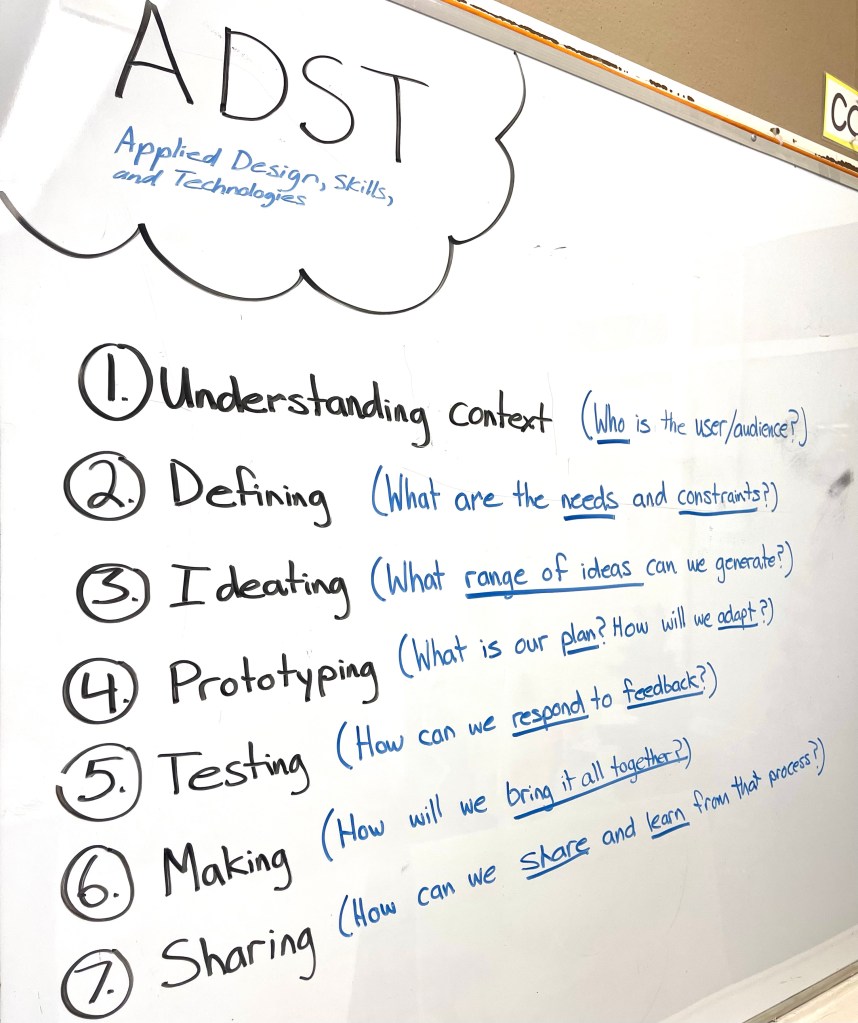 ADST
Applied Design, Skills,
and Technologies
1. Understanding context (Who is the user/audience?)
2. Defining (What are the needs and constraints?)
3. Ideating (What range of ideas can we generate?)
4. Prototyping (What is our plan? How will we adapt?)
5. Testing (How can we respond to feedback?)
6. Making (How will we bring it all together?)
7. Sharing (How can we share and learn from that process?)